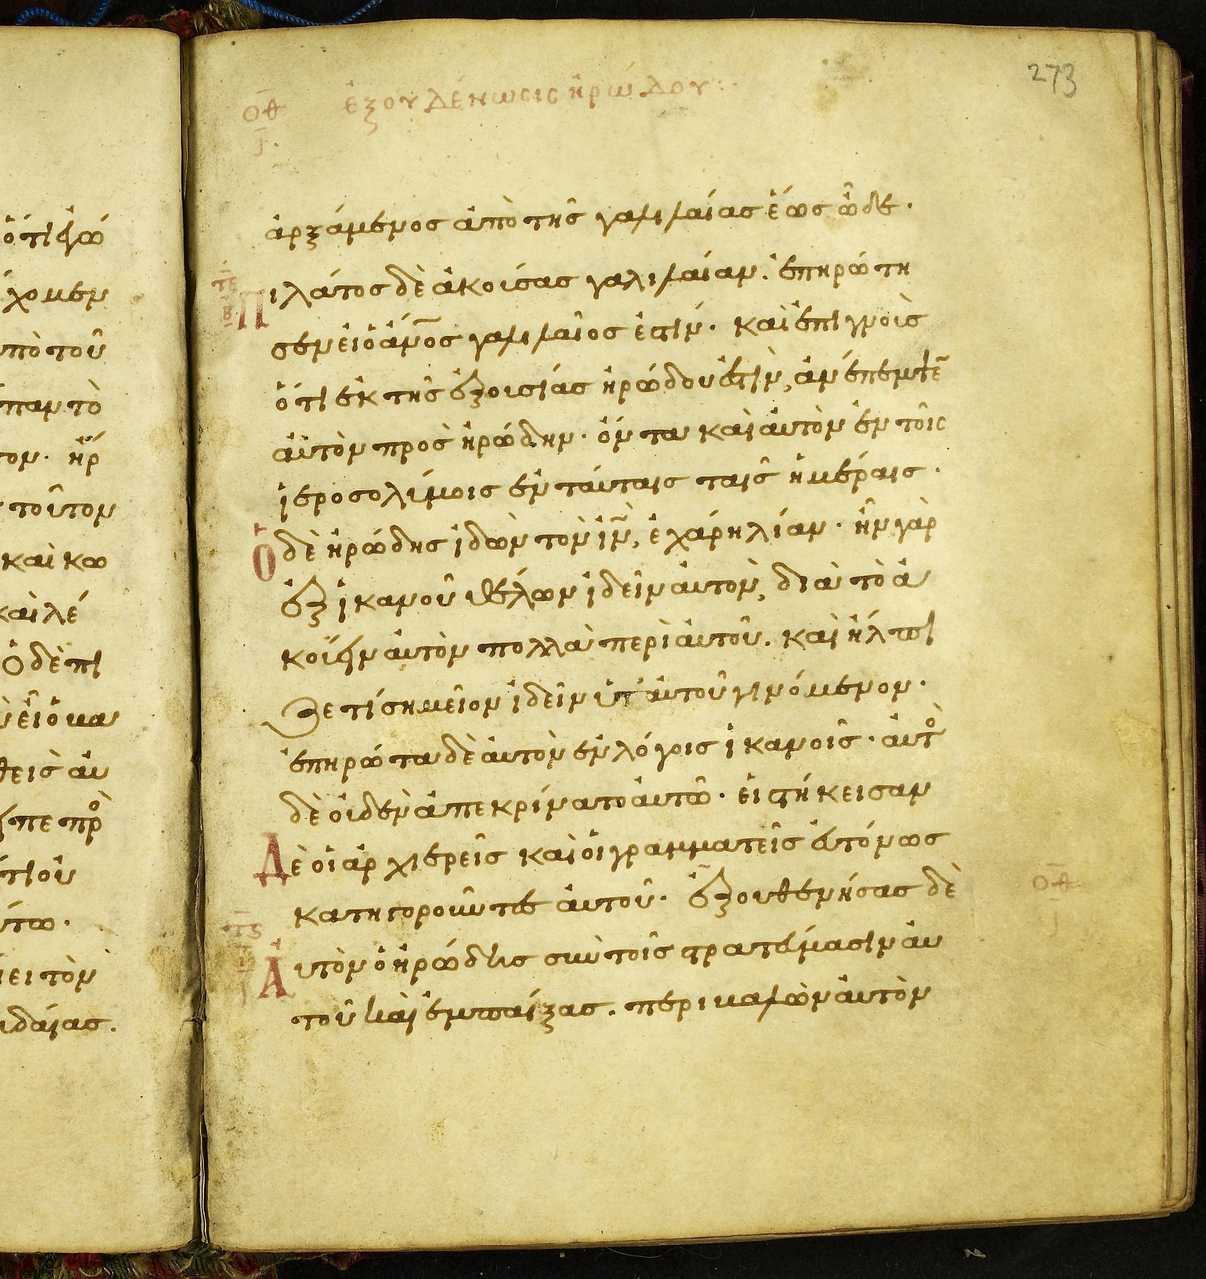 273
οθ ἐξουδένωσις ἡρώδου
ὅτι ἐγώ
πὸ τοῦ
παν τὸ
τοῦτον
καὶ λέ
ὁ δὲ πι
θεὶς αυ
πε πρὸ
ει τὸν
ἀρξάμενος ἀπὸ τῆς γαλιλαίας ἕως ὧδε.
τε
Πιλάτος δὲ ἀκούσας γαλιλαίαν. ἐπηρώτη
σεν εἰ ὁ ἄνος γαλιλαῖος ἐστιν. καὶ ἐπιγνοὺς
ὅτι ἐκ τῆς ἐξουσίας ἡρώδου ἐστὶν, ἀνέπεμψε
αὐτὸν πρὸς ἡρώδην. ὄντα καὶ αὐτὸν ἐν τοῖς
ἱεροσολύμοις ἐν ταύταις ταῖς ἡμέραις.
Ὁ δὲ ἡρώδης ἰδὼν τὸν ἰν, ἐχάρη λίαν. ἦν γὰρ
ἐξ ἱκανοῦ θέλων ἰδεῖν αὐτὸν, διὰ τὸ ἀ
κούειν αὐτὸν πολλὰ περὶ αὐτοῦ. καὶ ἤλπι
ζε τί σημεῖον ἰδεῖν ὑπ' αὐτοῦ γινόμενον.
ἐπηρώτα δὲ αὐτὸν ἐν λόγοις ἱκανοῖς. αὐτὸ
δὲ οὐδὲν ἀπεκρίνατο αὐτῶ. εἱστήκεισαν
Δὲ οἱ ἀρχιερεῖς καὶ οἱ γραμματεῖς εὐτόνως
κατηγοροῦντες αὐτοῦ. ἐξουθενήσας δὲ
οθ
τς
Αὐτὸν ὁ ἡρώδης σὺν τοῖς στρατεύμασιν αὐ
τοῦ καὶ ἐμπαίξας. περιβαλὼν αὐτὸν